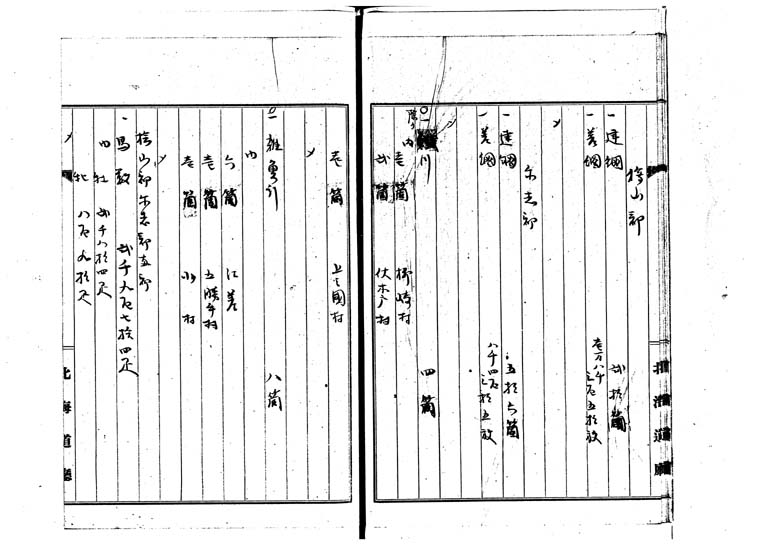 檜山郡
一 建網 弐拾箇
一 差網 壱万八千三百五拾放
〆
尓志郡
一 建網 五拾六箇
一 差網 八千四百三拾五放
〆
川 四箇
内
壱箇 柳崎村
弐箇 伏木戸村
壱箇 上之國村
〆
一 雑魚引 八箇
内
六箇 江差
壱箇 五勝手村
壱箇 小 村
〆
檜山郡尓志郡両郡
一 馬数 弐千九百七拾四疋
内 牡 弐千八拾四疋
牝 八百九拾疋
北海道廳